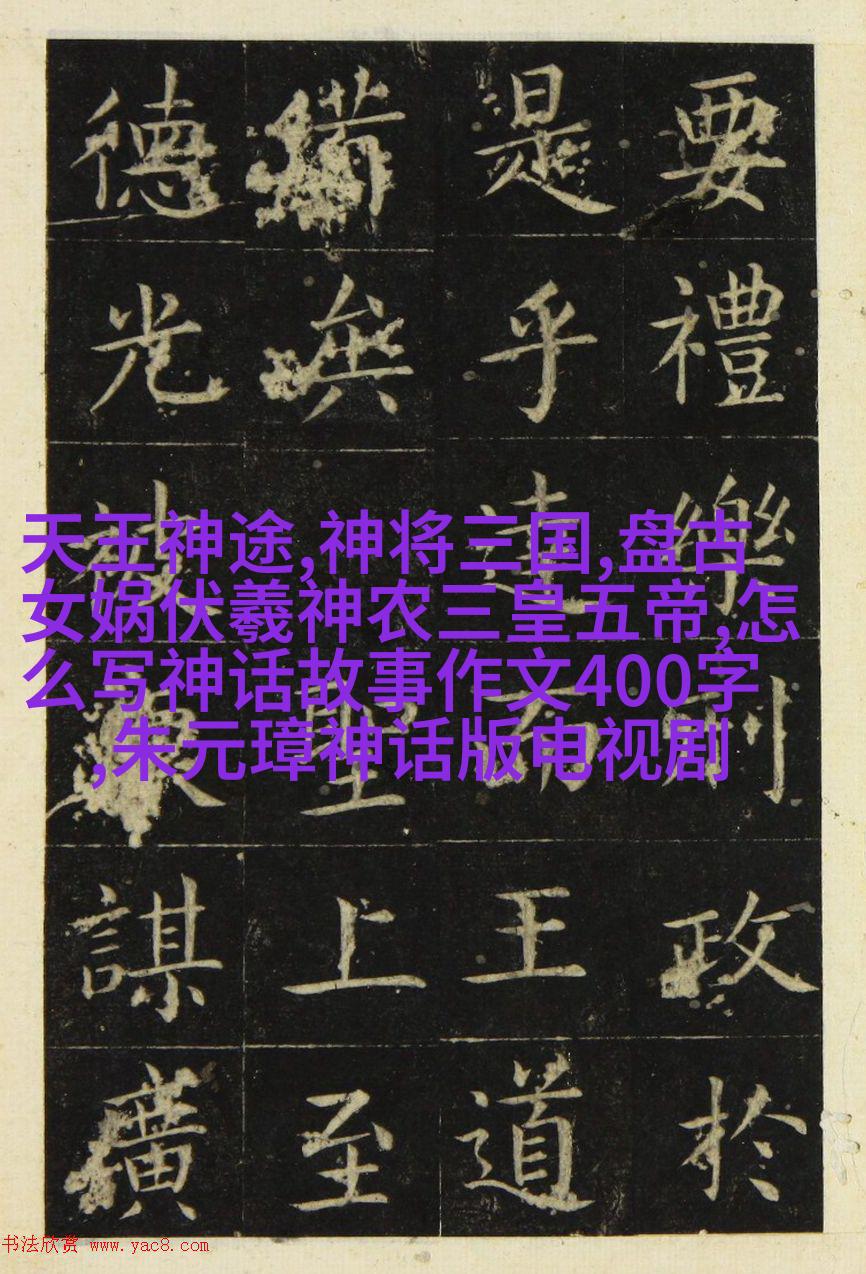 天王神途,神将三国,盘古
女娲伏羲神农三皇五帝,怎
么写神话故事作文400字
,朱元璋神话版电视剧
要禮樂刑政於
是乎達而王道
備無聖上至
德光被謀廣
书法欣赏 www.yac8.com